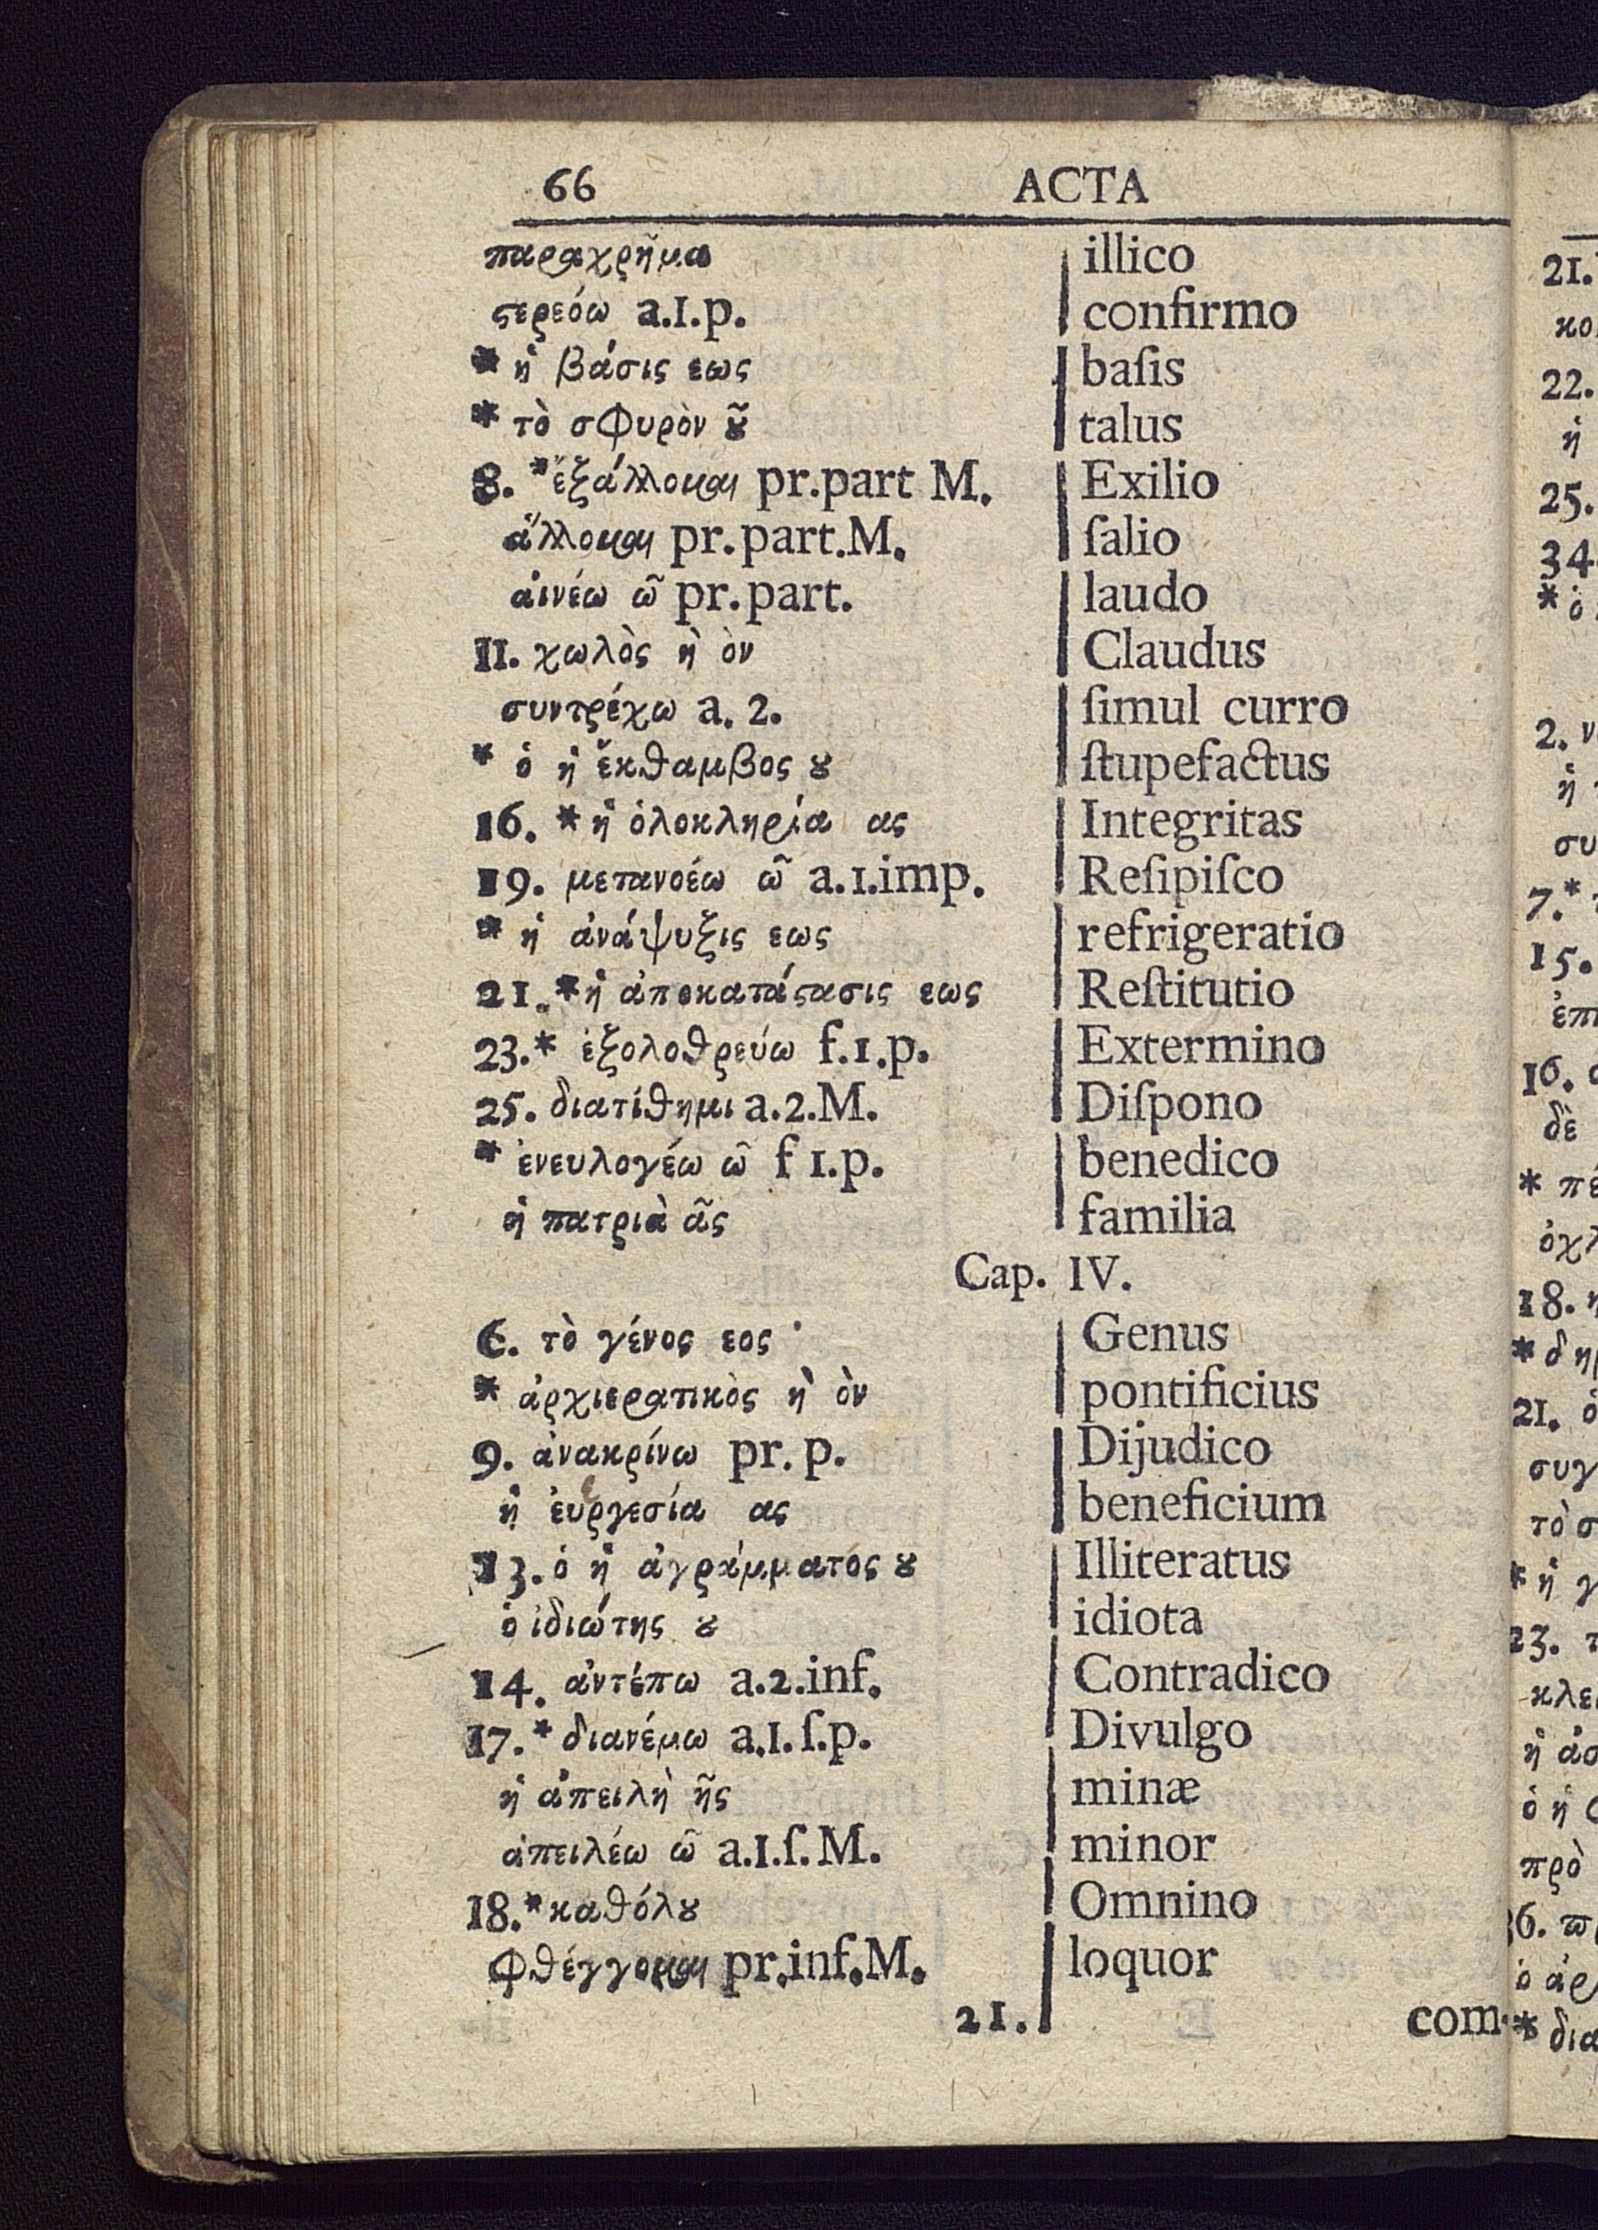 66 ACTA
παραχρῆμα illico
ϛερεόω a.1.p. confirmo
* ἡ βάσις εως baſis
* τὸ σφυρὸν ȣ͂ talus
8. *ἐξάλλομαι pr.part M. Exilio
ἅλλομαι pr.part.M. ſalio
αἰνέω ῶ pr.part. laudo
11. χωλὸς ὴ ὸν Claudus
συντρέχω a. 2. ſimul curro
* ὁ ἡ ἔκθαμβος ȣ ſtupefactus
16. * ἡ ὁλοκληρία ας Integritas
19. μετανοέω ῶ a.1.imp. Reſipiſco
* ἡ ἀνάψυξις εως refrigeratio
21. * ἡ ἀποκατάϛασις εως Reſtitutio
23.* ἐξολοθρεύω f.1.p. Extermino
25. διατίθημι a.2.M. Diſpono
* ἐνευλογέω ῶ f 1.p. benedico
ἡ πατριὰ ᾶς familia
Cap. IV.
6. τὸ γένος εος Genus
* ἀρχιερατικὸς ὴ ὸν pontificius
9. ἀνακρίνω pr. p. Dijudico
ἡ ἐυργεσία ας beneficium
13. ὁ ἡ ἀγράμματος ȣ Illiteratus
ὁ ἰδιώτης ȣ idiota
14. ἀντέπω a.2.inf. Contradico
17.* διανέμω a.1.ſ.p. Divulgo
ἡ ἀπειλὴ ῆς minæ
ἀπειλέω ῶ a.1.ſ.M. minor
18.* καθόλȣ Omnino
φθέγγομαι pr.inf.M. loquor
21. com-
21.
κο
22.
ἡ
25.
34
* ὁ
2. ν
ἡ
συ
7.*
15.
ἐπι
16.
δὲ
* πέ
ὀχλ
18.
* δημ
21. ὁ
συγ
τὸ σ
* ἡ γ
23. τ
κλε
ἡ ἀσ
ὁ ἡ
πρὸ
36.
ὁ ἀρ
* δια